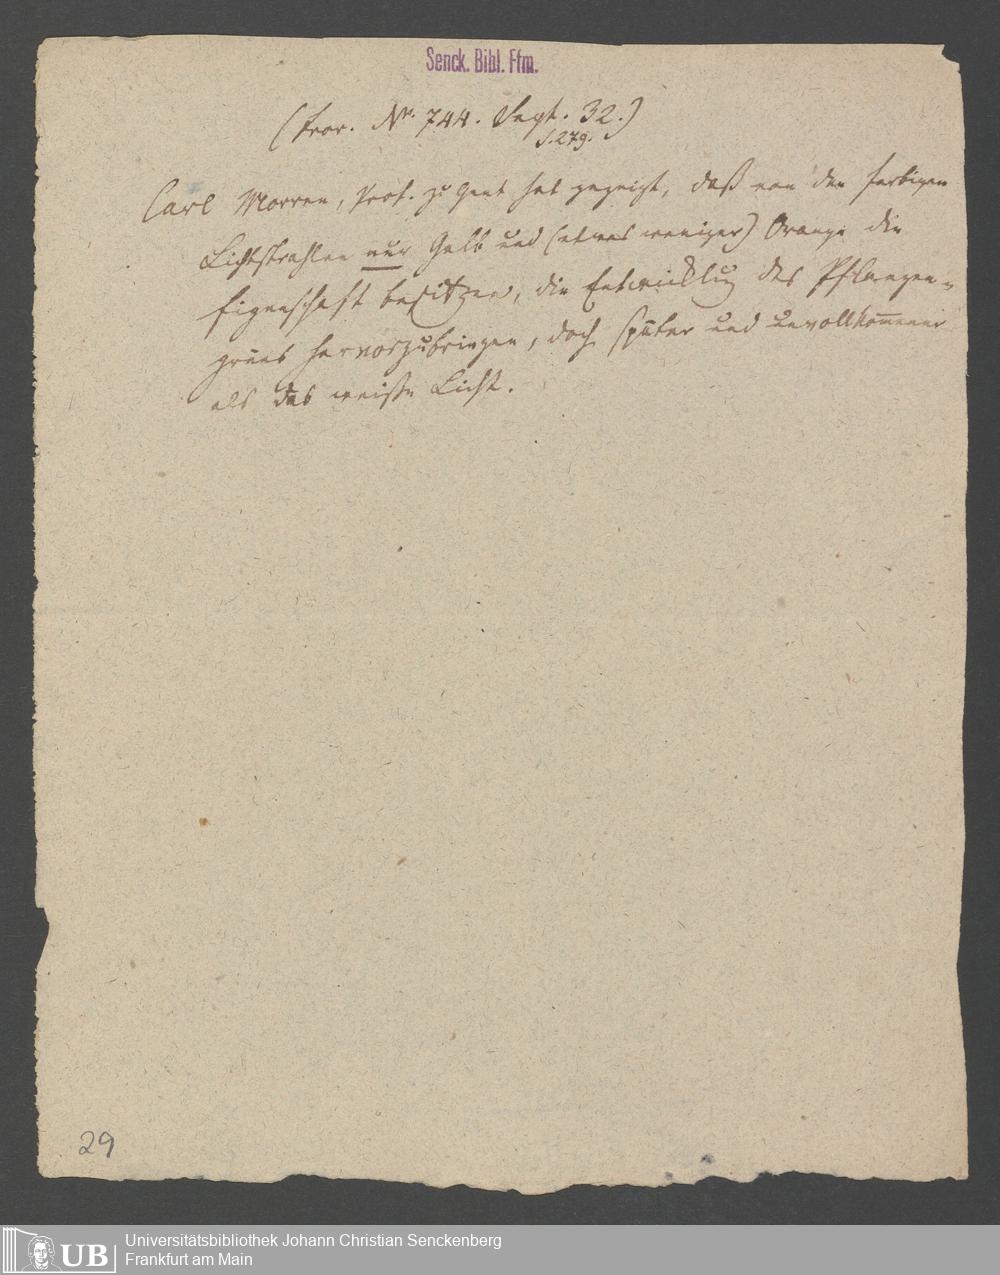 Senck. Bibl. Ffm.
(Fror. Nr. 744. Sept. 32.)
S. 279.
Carl Morren, Prof. zu Gent hat gezeigt, daß von den farbigen
Lichtstrahlen nur Gelb und (etwas weniger) Orange die
Eigenschaft besitzen, die Entwicklug des Pflanzen-
grüns hervorzubringen, doch später und unvollkom̅ener
als das weiße Licht.
29
UB
Universitätsbibliothek Johann Christian Senckenberg
Frankfurt am Main